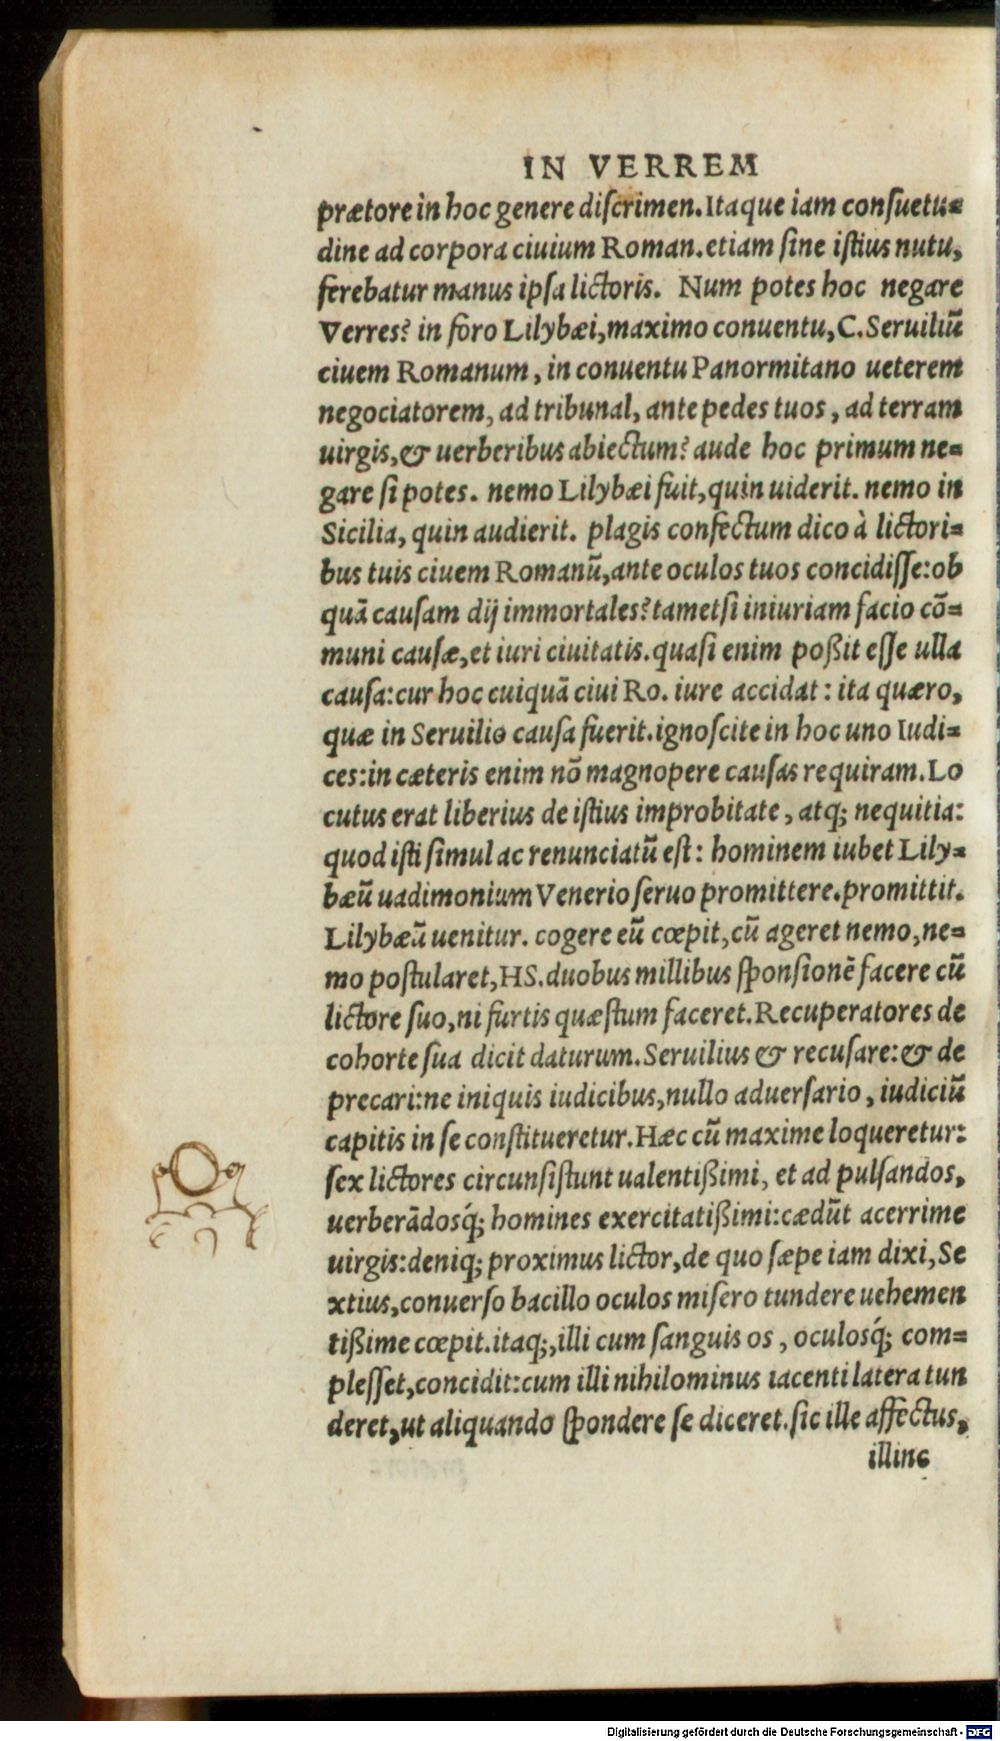 IN VERREM
prætore in hoc genere diſcrimen. Itaque iam conſuetu=
dine ad corpora ciuium Roman. etiam ſine iſtius nutu,
ferebatur manus ipſa lictoris. Num potes hoc negare
Verres? in foro Lilybæi, maximo conuentu, C. Seruiliũ
ciuem Romanum, in conuentu Panormitano ueterem
negociatorem, ad tribunal, ante pedes tuos, ad terram
uirgis, & uerberibus abiectum? aude hoc primum ne=
gare ſi potes. nemo Lilybæi fuit, quin uiderit. nemo in
Sicilia, quin audierit. plagis confectum dico à lictori=
bus tuis ciuem Romanũ, ante oculos tuos concidiſſe: ob
quã cauſam dij immortales? tametſi iniuriam facio cõ=
muni cauſæ, et iuri ciuitatis. quaſi enim poßit eſſe ulla
cauſa: cur hoc cuiquã ciui Ro. iure accidat: ita quæro,
quæ in Seruilio cauſa fuerit. ignoſcite in hoc uno Iudi=
ces: in cæteris enim nõ magnopere cauſas requiram. Lo
cutus erat liberius de iſtius improbitate, atq; nequitia:
quod iſti ſimul ac renunciatũ eſt: hominem iubet Lily=
bæũ uadimonium Venerio ſeruo promittere. promittit.
Lilybæũ uenitur. cogere eũ cœpit, cũ ageret nemo, ne=
mo poſtularet, HS. duobus millibus ſponſionẽ facere cũ
lictore ſuo, ni furtis quæſtum faceret. Recuperatores de
cohorte ſua dicit daturum. Seruilius & recuſare: & de
precari: ne iniquis iudicibus, nullo aduerſario, iudiciũ
capitis in ſe conſtitueretur. Hæc cũ maxime loqueretur:
ſex lictores circunſiſtunt ualentißimi, et ad pulſandos,
uerberãdosq́; homines exercitatißimi: cædũt acerrime
uirgis: deniq; proximus lictor, de quo ſæpe iam dixi, Se
xtius, conuerſo bacillo oculos miſero tundere uehemen
tißime cœpit. itaq;, illi cum ſanguis os, oculosq́; com=
pleſſet, concidit: cum illi nihilominus iacenti latera tun
deret, ut aliquando ſpondere ſe diceret. ſic ille affectus,
illinc
Digitalisierung gefördert durch die Deutsche Forschungsgemeinschaft - DFG